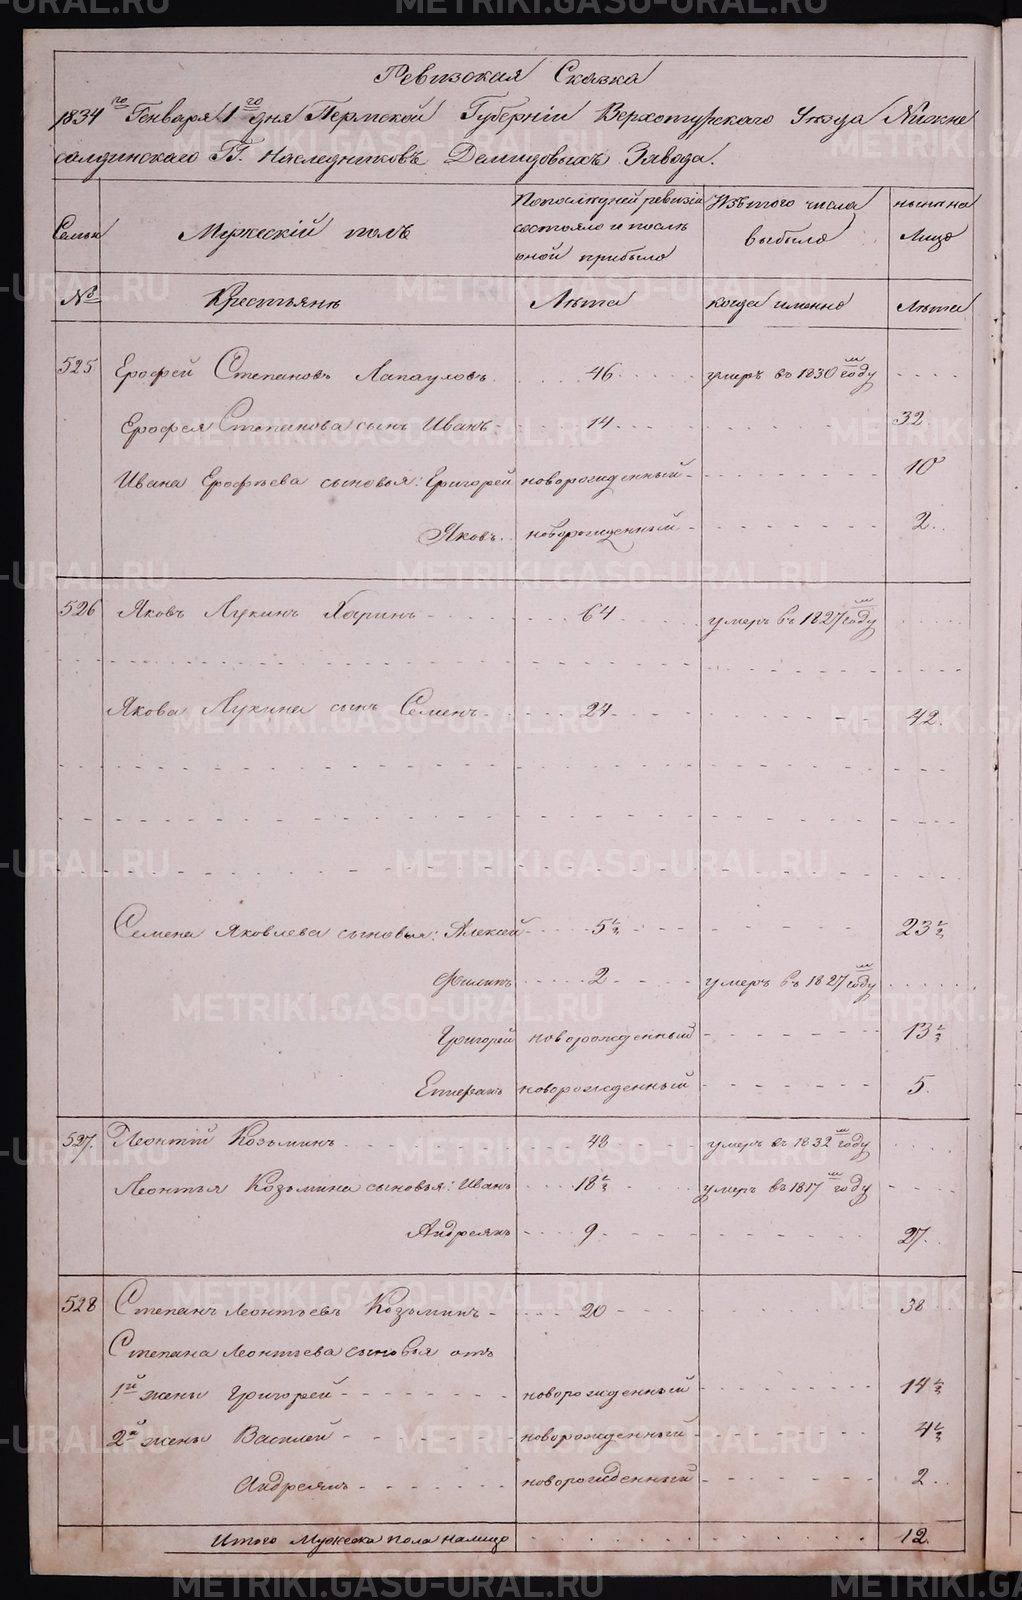 Ревизская Сказка
1834го Генваря 1го дня Пермской Губернiи Верхотурскаго Уезда Нижне
салдинскаго ГГ. Наследниковъ Демидовыхъ Завода.
Семьи Мужескiй полъ По последней ревизiи состояло и после оной прибыло Изъ того числа выбыло ныне на Лицо
№ Крестьянъ Лета когда именно Лета
525 Ерофей Степановъ Лапауловъ 46 умеръ въ 1830м году
Ерофея Степанова сынъ Иванъ 14 32
Ивана Ерофеева сыновья: Григорей новорожденный 10
Яковъ новорожденный 2
526 Яковъ Лукинъ Харинъ 64 умеръ въ 1827м году
Якова Лукина сынъ Семенъ 24 42.
Семена Яковлева сыновья: Алексей 5½ 23½
Филипъ 2 умеръ въ 1827м году
Григорей новорожденный 13½
Епифанъ новорожденный 5.
527. Леонтiй Козьминъ 48 умеръ въ 1832м году
Леонтья Козьмина сыновья: Иванъ 18½ умеръ въ 1817м году
Андреянъ 9 27.
528 Степанъ Леонтьевъ Козьминъ 20 38
Степана Леонтьева сыновья отъ
1й жены Григорей новорожденный 14½
2й жены Василей новорожденный 4½
Андреянъ новорожденный 2
Итого Мужеска пола налицо 12.
METRIKI.GASO-URAL.RU